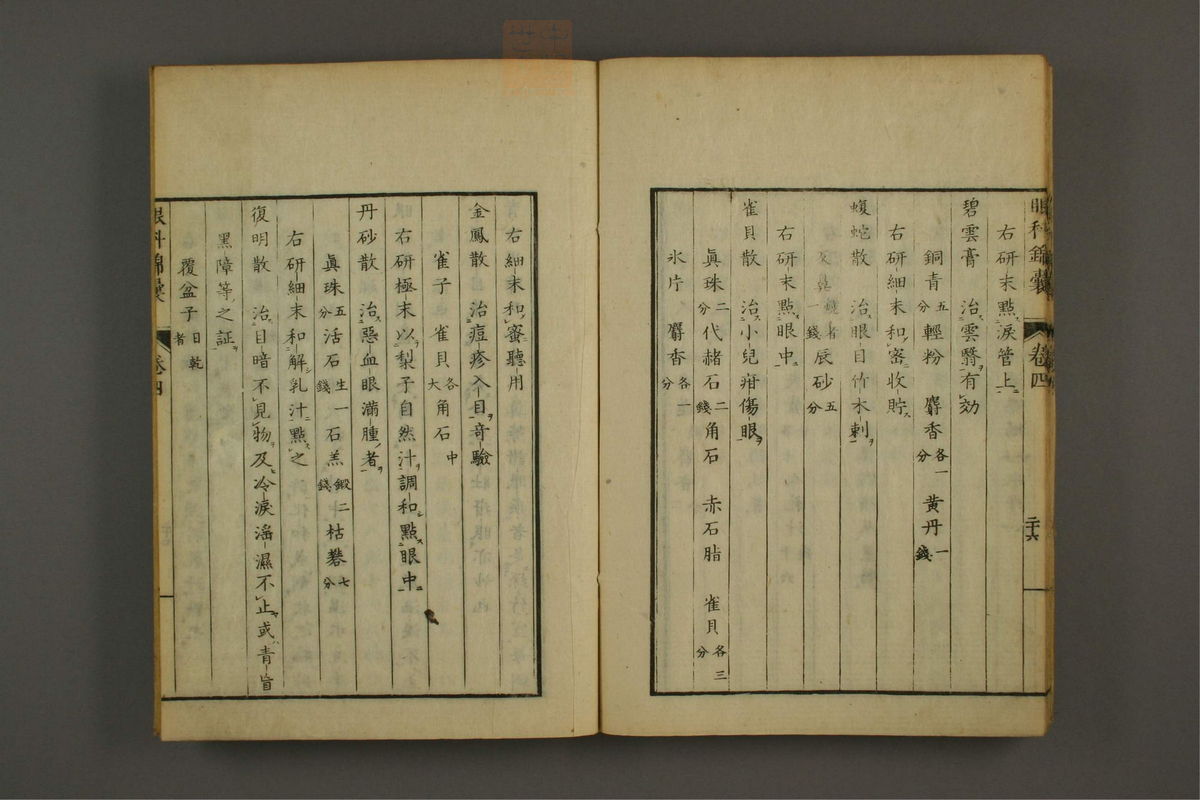 眼科錦囊 卷四 三十六
右研末點涙管上
碧雲膏 治雲翳有効
銅青五分輕粉 麝香各一分 黄丹一錢
右研細末和密收貯
蝮蛇散 治眼目竹木刺
蝮蛇燒者一錢辰砂五分
右研末點眼中
雀貝散 治小兒疳傷眼
眞珠二分代赭石二錢角石 赤石脂 雀貝各三分
氷片 麝香各一分
右細末和蜜聽用
金鳳散 治痘疹入目奇驗
雀子 雀貝各大角石中
右研極末以梨子自然汁調和點眼中
丹砂散 治惡血眼滿腫者
眞珠五分活石生一錢石羔煅二錢枯礬七分
右研細末和解乳汁點之
復明散 治目暗不見物及冷涙溢濕不止或青盲
黑障等之証
覆盆子日乾者
眼科錦囊 卷四